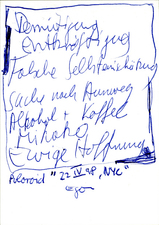 Demütigung
Entkräftigung
Falsche Selbsteinschätzung
Suche nach Ausweg
Alkohol + Koffel
Mikado
Ewige Hoffnung
Polaroid "22 IV 98, NYC"
Ego